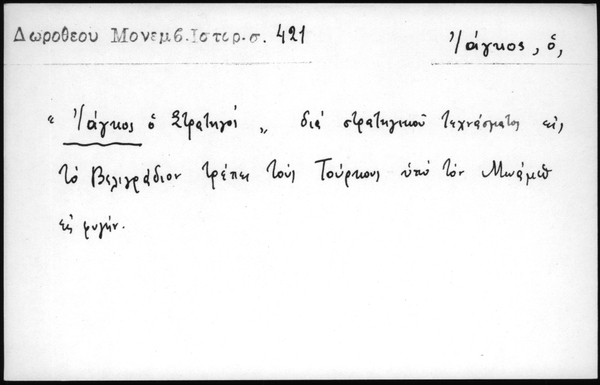 Δωροθεου Μονεμβ. Ιστορ. σ. 421
Ἰάγκος, ὁ,
« Ἰάγκος ὁ Στρατηγός „ διά στρατηγικοῦ τεχνάσματος εἰς
τό Βελιγράδιον τρέπει τούς Τούρκους ὑπό τόν Μωάμεθ
εἰς φυγήν.